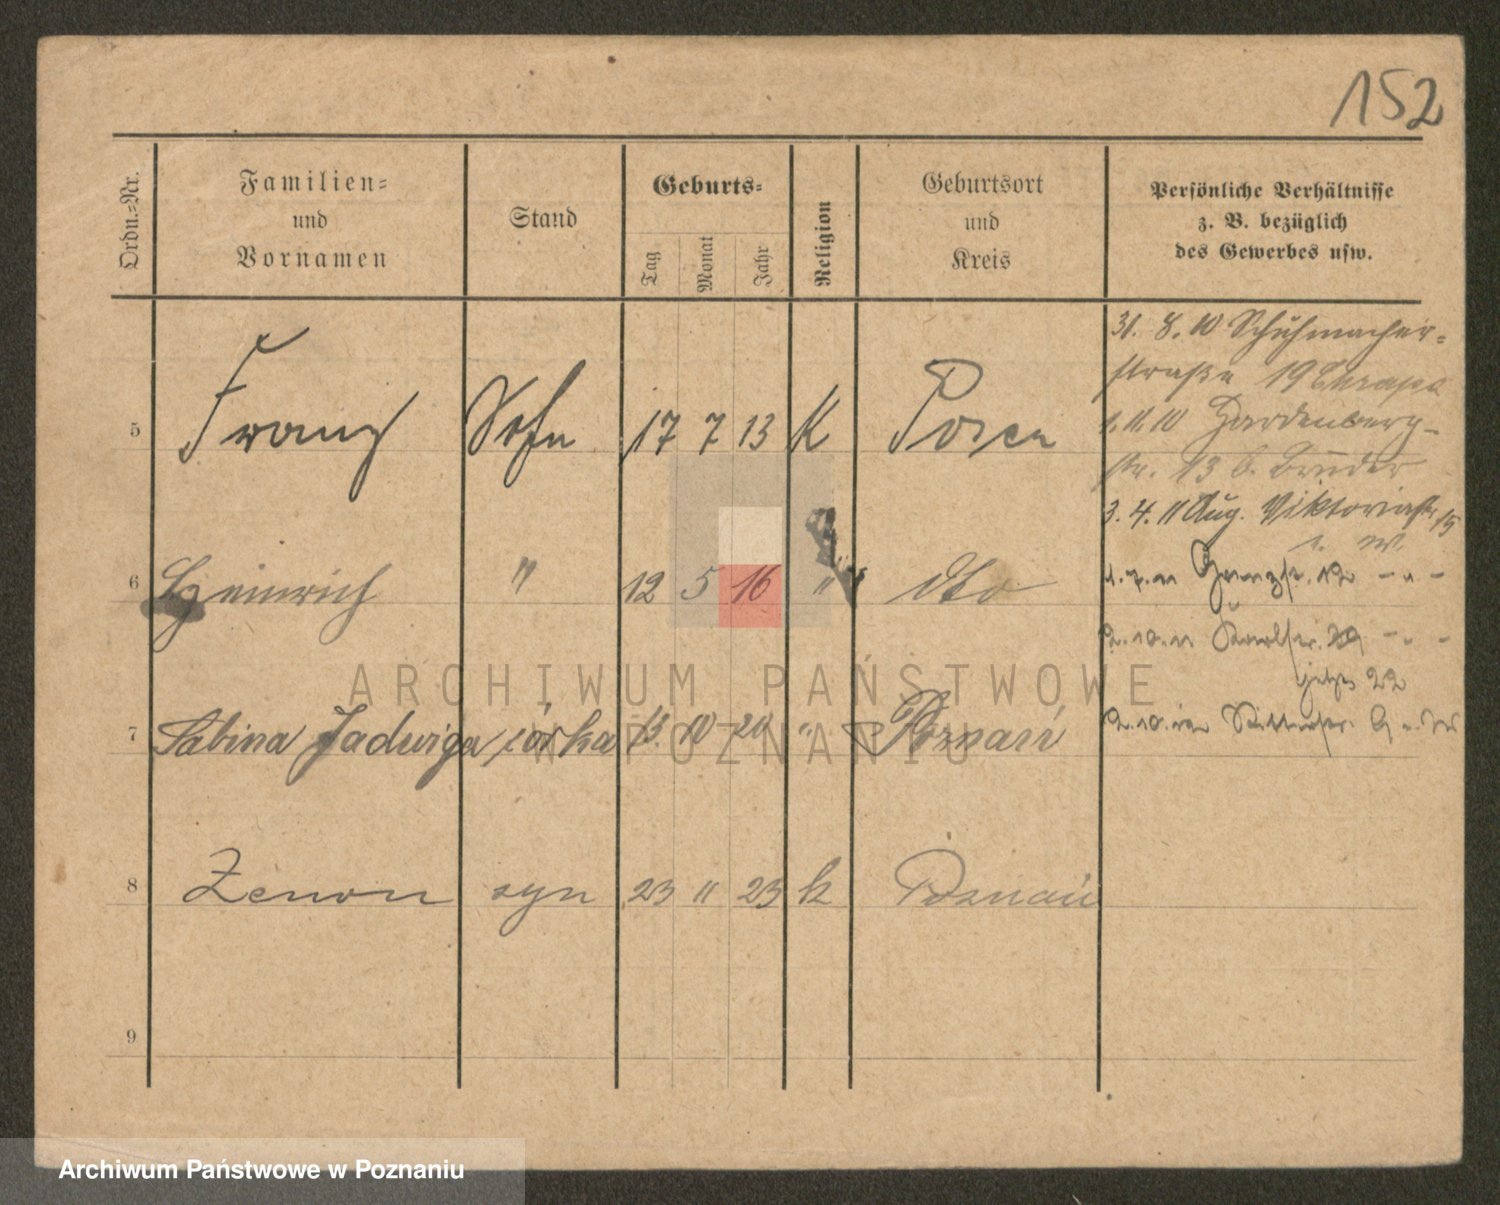 152
Ordn.-Nr.
Familien-
und
Vornamen
Stand
Geburts-
Tag
Monat
Jahr
Religion
Geburtsort
und
Kreis
Persönliche Verhältnisse
z. B. bezüglich
des Gewerbes usw.
5 Franz Sohn 17 7 13 K Posen
6 Heinrich " 12 5 16 " dto
7 Sabina Jadwiga córka 13. 10 20 " Poznań
8 Zenon syn 23 11 23 k Poznań
9
31. 8. 10 Schuhmacher-
straße 19
1. 11. 10 Hardenberg-
str. 13 b. Bruder
3. 4. 11 Aug. Viktoriastr. 15
1. 7. 11 12 - " -
2. 10. 11 Karlstr. 39 - " -
jetzt 22
2. 10. 12
ARCHIWUM PAŃSTWOWE
W POZNANIU
Archiwum Państwowe w Poznaniu